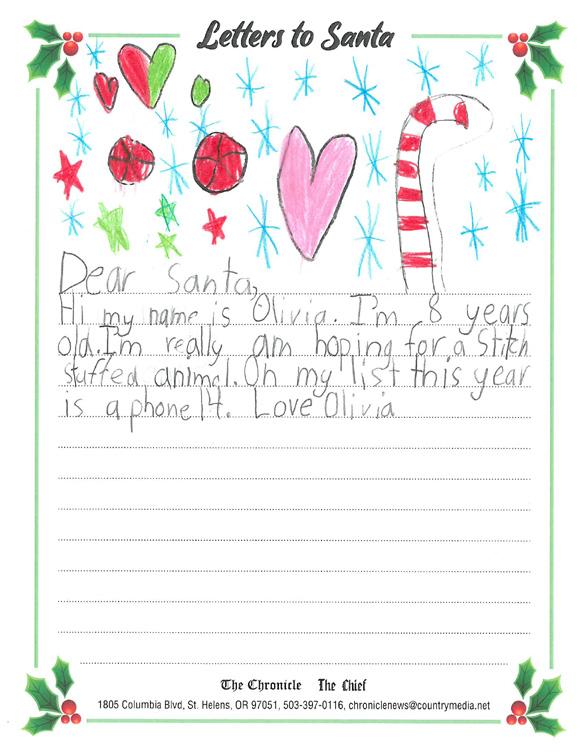 Letters to Santa
Dear Santa,
Hi my name is Olivia. I'm 8 years
old. I'm really am hoping for a Stitch
stuffed animal. On my list this year
is a phone 14. Love Olivia
The Chronicle The Chief
1805 Columbia Blvd, St. Helens, OR 97051, 503-397-0116, chroniclenews@countrymedia.net